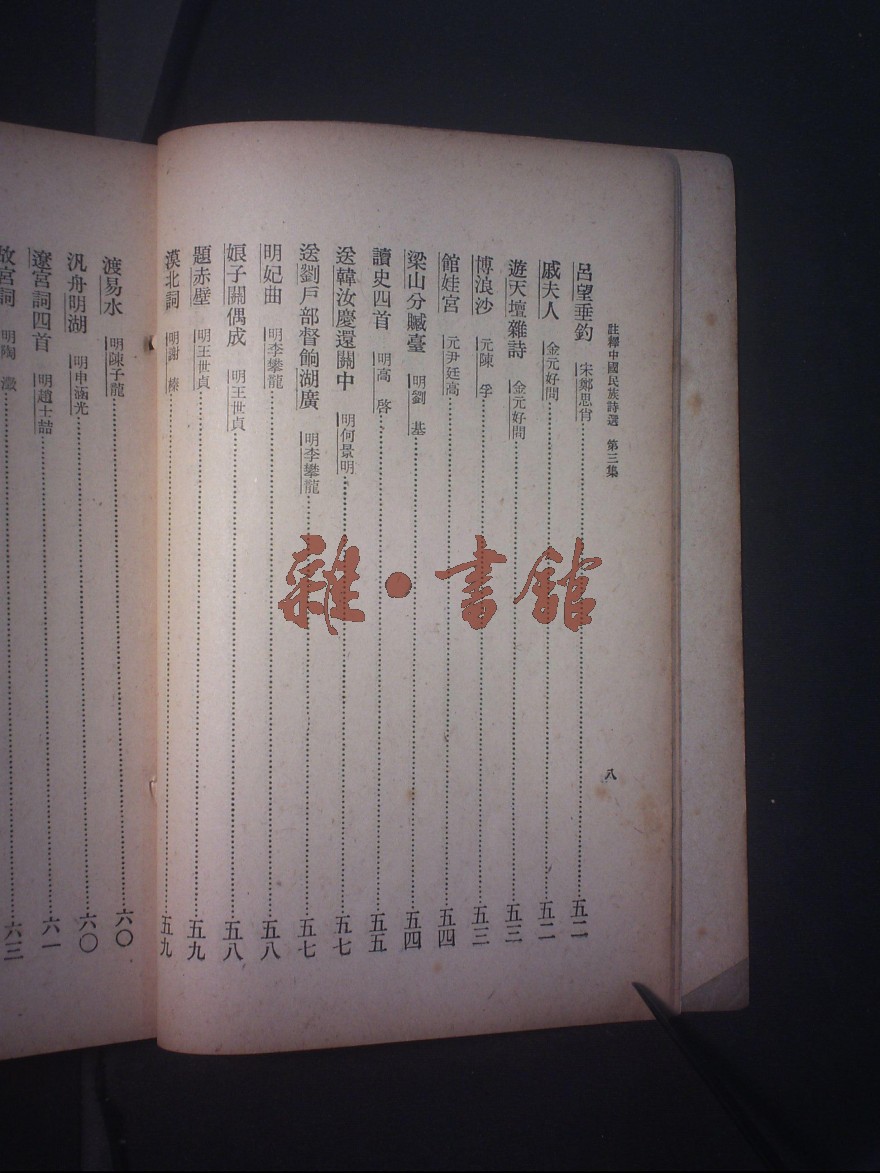 註釋中國民族詩選 第三集
八
呂望垂釣 宋鄭思肖 五二
戚夫人 金元好問 五二
遊天壇雜詩 金元好問 五三
博浪沙 元陳孚 五三
館娃宮 元尹廷高 五四
梁山分贓臺 明劉基 五四
讀史四首 明高啓 五五
送韓汝慶還關中 明何景明 五七
送劉戶部督餉湖廣 明李攀龍 五七
明妃曲 明李攀龍 五八
娘子關偶成 明王世貞 五八
題赤壁 明王世貞 五九
漠北詞 明謝榛 五九
渡易水 明陳子龍 六〇
汎舟明湖 明申涵光 六〇
遼宮詞四首 明趙士喆 六一
故宮詞 明陶澂 六三
雜·書館